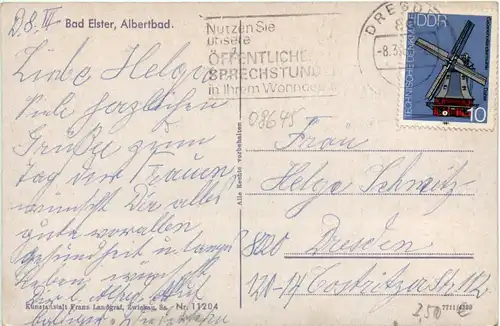 D. 8. III
Bad Elster, Albertbad.
Nutzen Sie
unsere
ÖFFENTLICHE
SPRECHSTUNDE
in Ihrem
DRESD
-8.3.
DDR
TECHNISCHE DENKMALE
10
Liebe Helga
Viele herzlichen
Grüße zum
Tag der Frauen
wünscht Dir alles
gute vorallen
Gesundheit u. langes
Leben, wünscht
08645
Alle Rechte vorbehalten
Frau
Helga Schmitz
8020 Dresden
Kunstanstalt Franz Landgraf, Zwickau, Sa. Nr. 11204
7711/4320
250